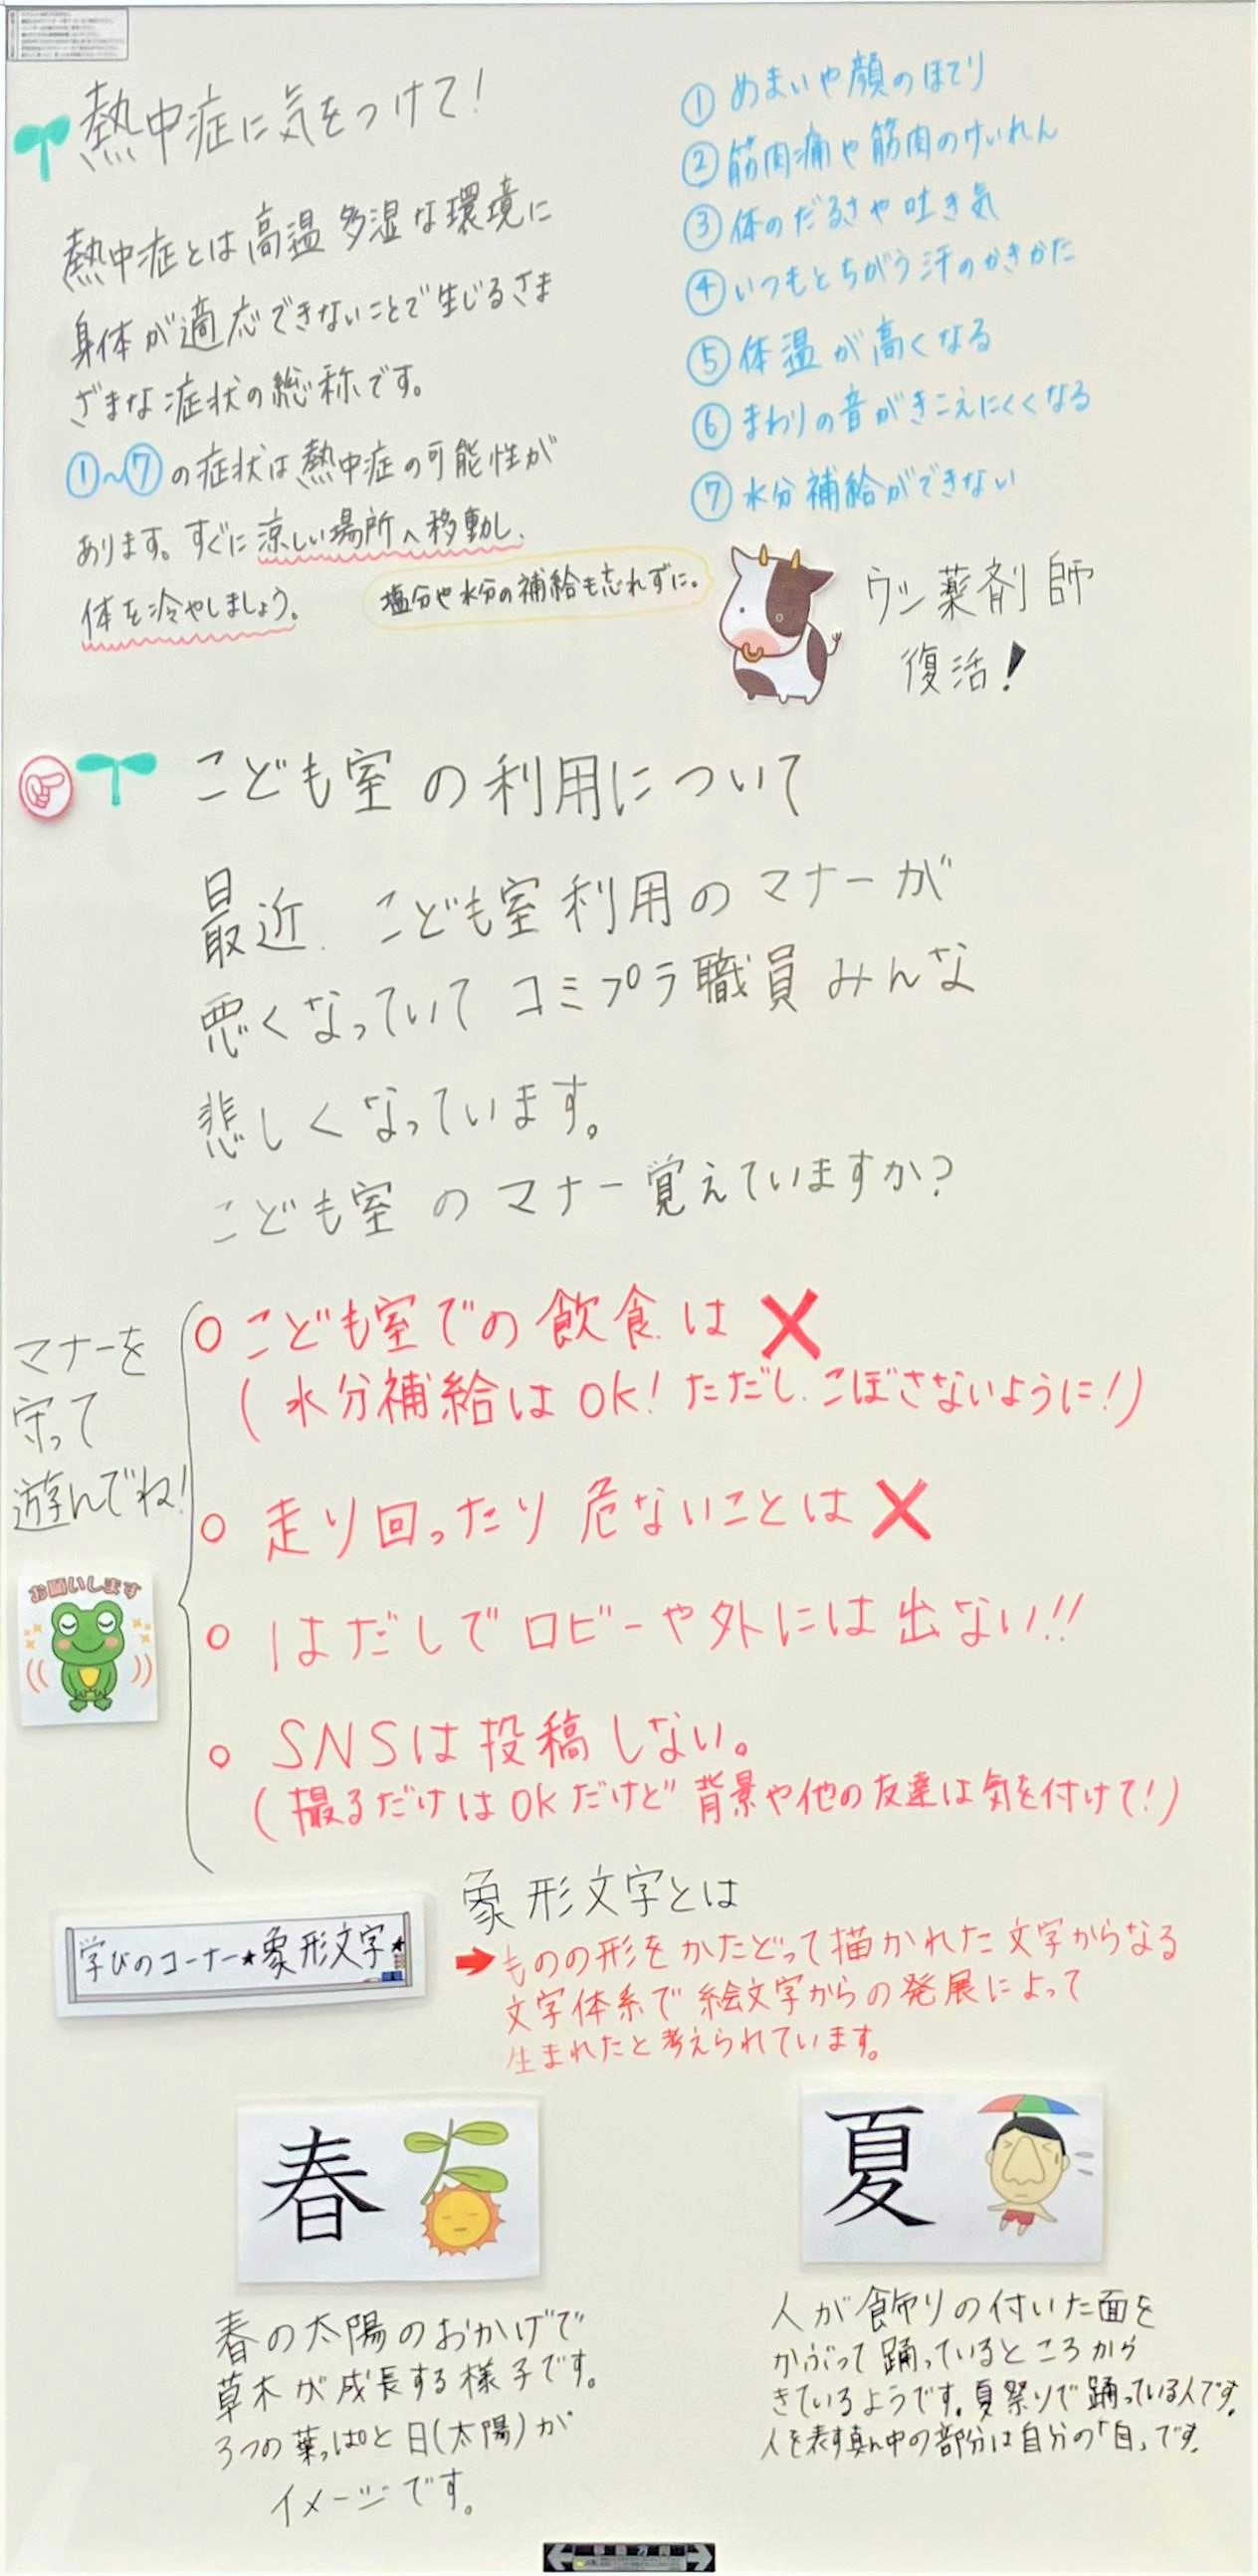 熱中症に気をつけて!
熱中症とは高温多湿な環境に
身体が適応できないことで生じるさま
ざまな症状の総称です。
①~⑦の症状は熱中症の可能性が
あります。すぐに涼しい場所へ移動し、
体を冷やしましょう。
塩分や水分の補給も忘れずに。
①めまいや顔のほてり
②筋肉痛や筋肉のけいれん
③体のだるさや吐き気
④いつもとちがう汗のかきかた
⑤体温が高くなる
⑥まわりの音がきこえにくくなる
⑦水分補給ができない
ウシ薬剤師
復活!
こども室の利用について
最近、こども室利用のマナーが
悪くなっていてコミプラ職員みんな
悲しくなっています。
こども室のマナー覚えていますか?
マナーを
守って
遊んでね!
お願いします
○こども室での飲食は×
(水分補給はOK!ただし、こぼさないように!)
○走り回ったり危ないことは×
○はだしでロビーや外には出ない!!
○SNSは投稿しない。
(撮るだけはOKだけど背景や他の友達は気を付けて!)
学びのコーナー★象形文字★
象形文字とは
➡ものの形をかたどって描かれた文字からなる
文字体系で絵文字からの発展によって
生まれたと考えられています。
春
春の太陽のおかげで
草木が成長する様子です。
3つの葉っぱと日(太陽)が
イメージです。
夏
人が飾りの付いた面を
かぶって踊っているところから
きているようです。夏祭りで踊っている人です。
人を表す真ん中の部分は自分の「自」です。